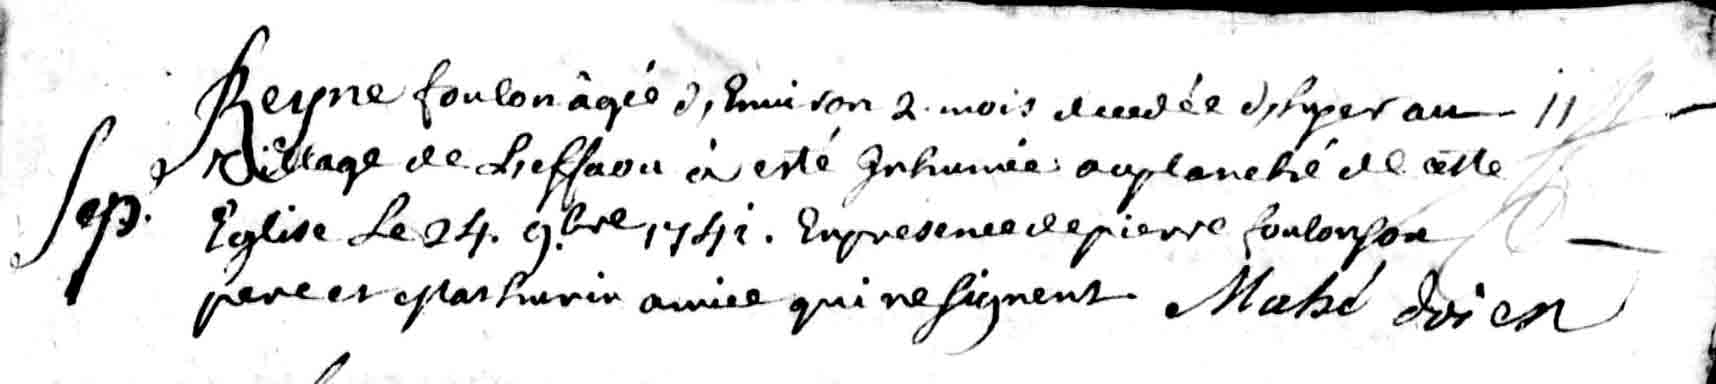 Reyne foulon âgée d'Environ 2. mois decedée d'hyer au
Village de Lieffaou à esté Inhumée au planché de cette
Sep. Eglise Le 24. 9.bre 1741. En presence de pierre foulon son
pere et Mathurin amice qui ne signent. Mahé doien